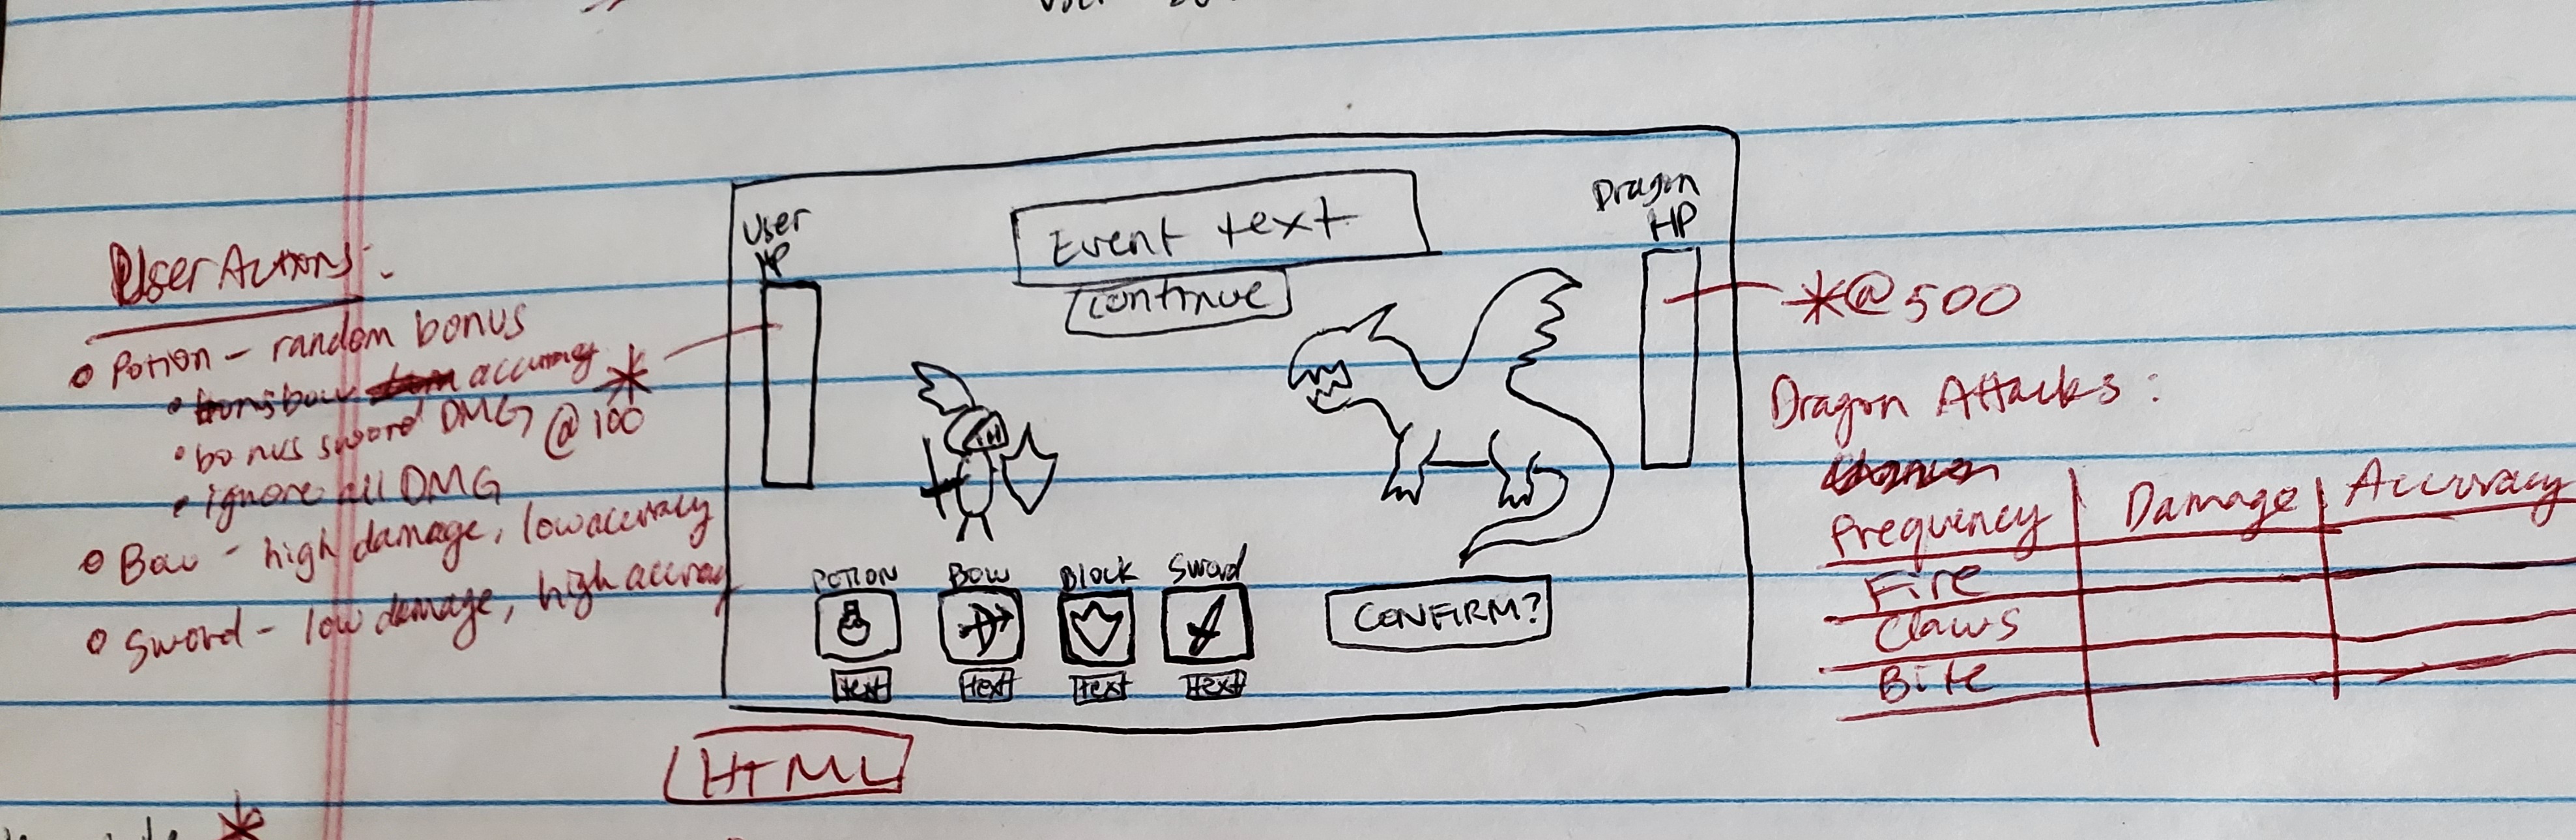 User Actions:
Potion - random bonus
bow accuracy
bonus sword DMG
ignore all DMG
Bow - high damage, low accuracy
Sword - low damage, high accuracy
* @ 100
User
HP
Event text
Continue
Dragon
HP
POTION
Bow
Block
Sword
CONFIRM?
text
text
text
text
HTML
*@ 500
Dragon Attacks:
Frequency Damage Accuracy
Fire
Claws
Bite